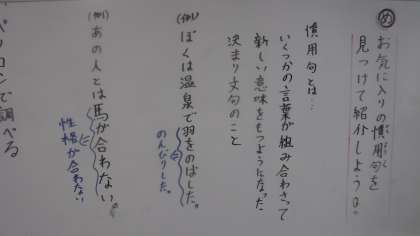 め お気に入りの慣用句を
見つけて紹介しよう。
慣用句とは…
いくつかの言葉が組み合わさって
新しい意味をもつようになった
決まり文句のこと
(例)
ぼくは温泉で羽をのばした。
のんびりした。
(例)
あの人とは馬が合わない。
性格が合わない
パソコンで調べる